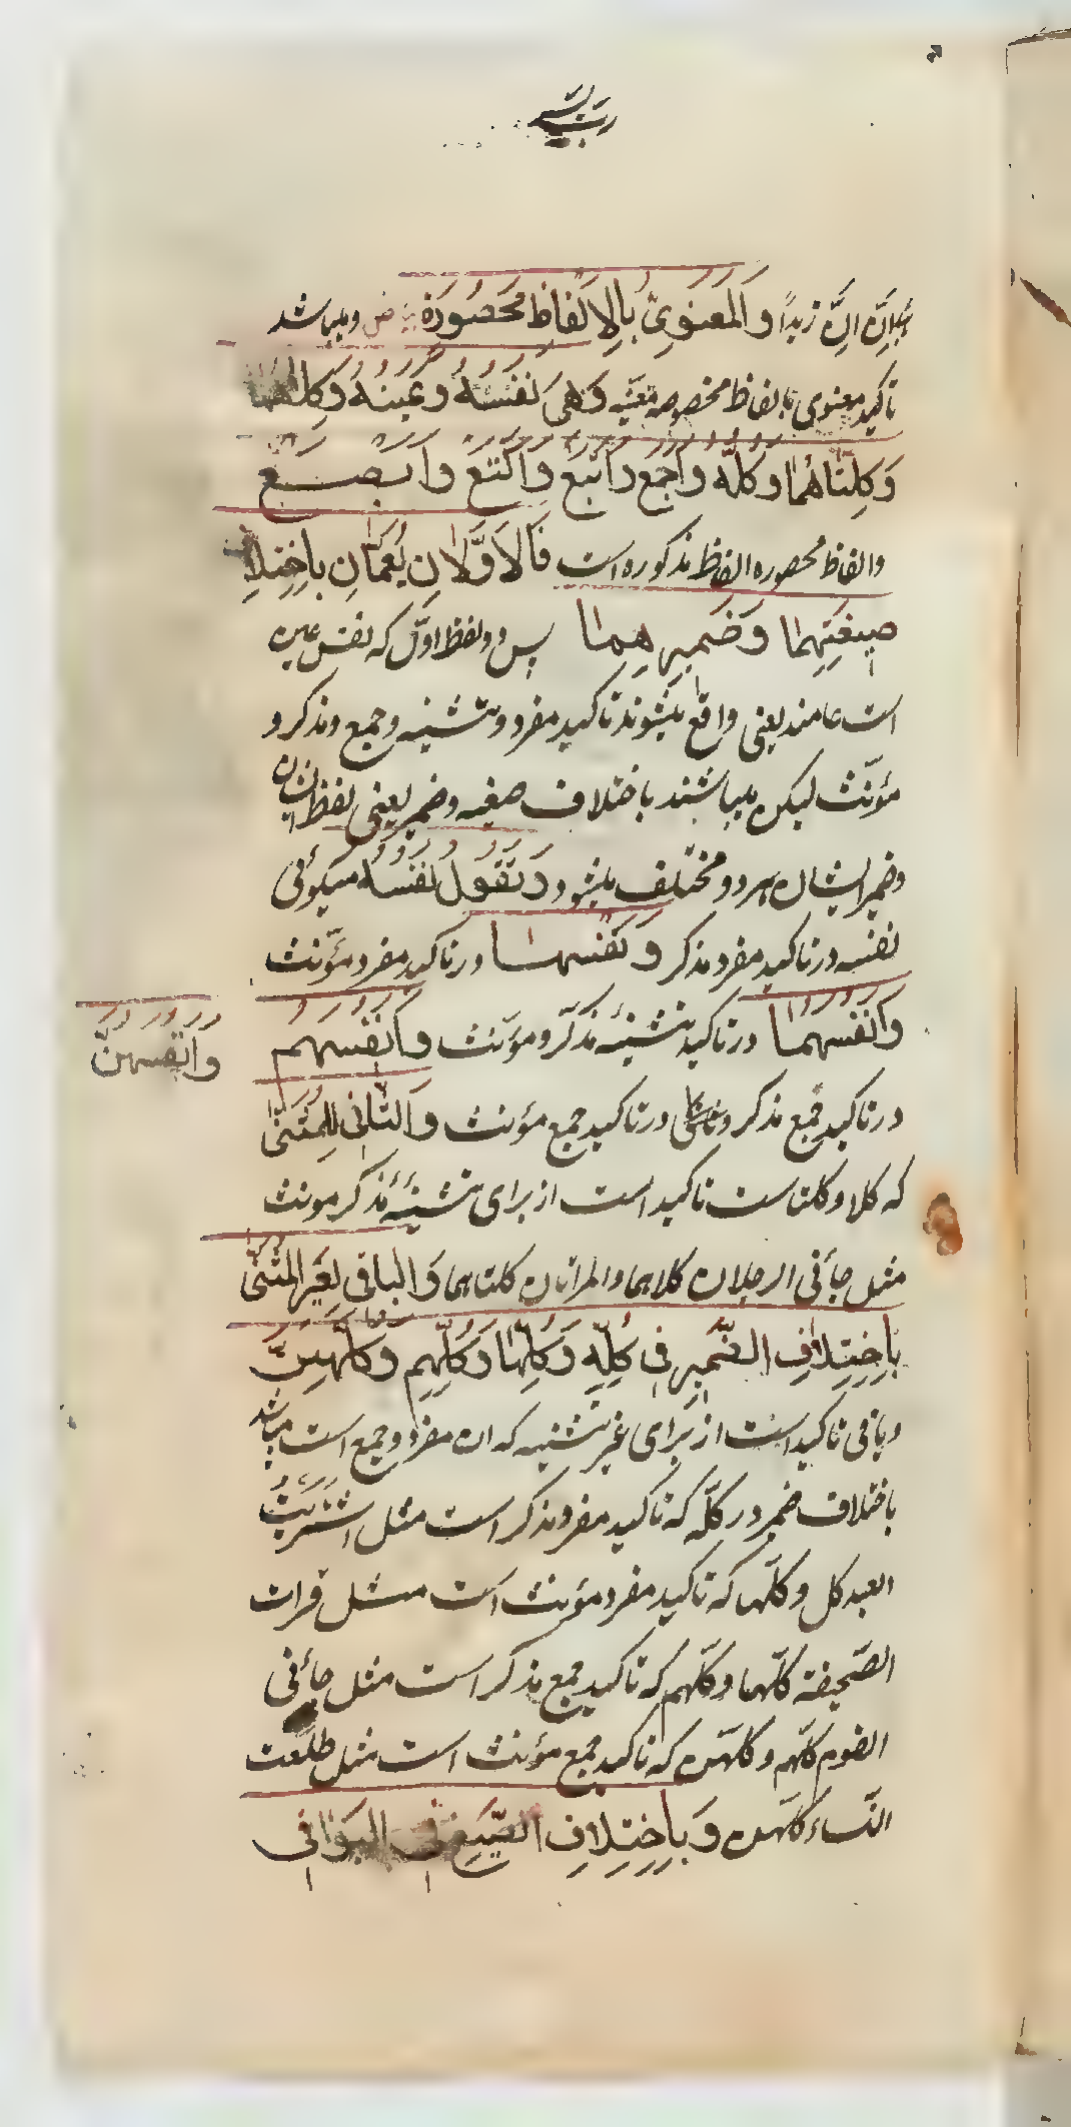 اِنَّ اِنَّ زیداً وَالمَعنَوِیّ بِالاَلفاظِ مَحصُورَة ومیباشد
تاکید معنوی بالفاظ مخصوصه معیّنه وَهِیَ نَفسُهُ وَعَینُهُ وَکِلاهُمَا
وَکِلتاهُما وَکُلُّهُ وَاَجمَع وَاَتبَع وَاَکتَع وَاَبصَع
والفاظ محصوره الفاظ مذکوره است فَالاَوَّلانِ یَعُمّانِ بِاِختِلافِ
صیغَتِهِما وَضَمیرِهِما پس دو لفظ اوّل که نفس و عین
است عامند یعنی واقع میشوند تاکید مفرد و تثنیه و جمع و مذکر و
مؤنّث لیکن میباشند باختلاف صیغه و ضمیر یعنی لفظ ایشان
وضمیر ایشان هردو مختلف میشود وَتَقُولُ نَفسُهُ میگوئی
نفسه در تاکید مفرد مذکر وَنَفسها در تاکید مفرد مؤنّث
وَاَنفُسُهُما در تاکید تثنیهٔ مذکّر و مؤنث وَاَنفُسُهُم
وانفسهنّ
در تاکید جمع مذکر در تاکید جمع مؤنث وَالثّانی لِلمُثَنّی
که کلا و کلتاست تاکید است از برای تثنیهٔ مذکر مونث
مثل جائنی الرجلان کلاهما والمراتان کلتاهما وَالباقی لِغَیرِ المُثَنّی
بِاِختِلافِ الضَّمیرِ فی کُلِّهِ وَکُلِّها وَکُلِّهِم وَکُلِّهِنَّ
وباقی تاکید است از برای غیر تثنیه که ان مفرد و جمع است میباشد
باختلاف ضمیر در کلّه که تاکید مفرد مذکر است مثل اشتَرَیتُ
العبد کل وکلّها که تاکید مفرد مؤنث است مثل قرات
الصّحیفة کلّها وکلّهم که تاکید جمع مذکر است مثل جائنی
القوم کلّهم وکلهنّ که تاکید جمع مؤنث است مثل طلّقت
النّساء کلّهنّ وَبِاِختِلافِ الصِّیَغِ فی البَواقی